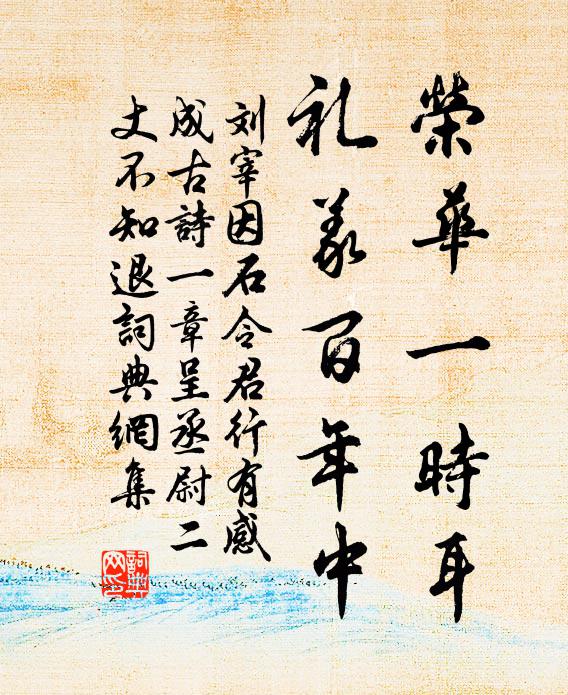 榮華一時耳
礼義百年中
刘宰因石令君行有感
成古詩一章呈丞尉二
丈不知退詞典網集
詞典
网印